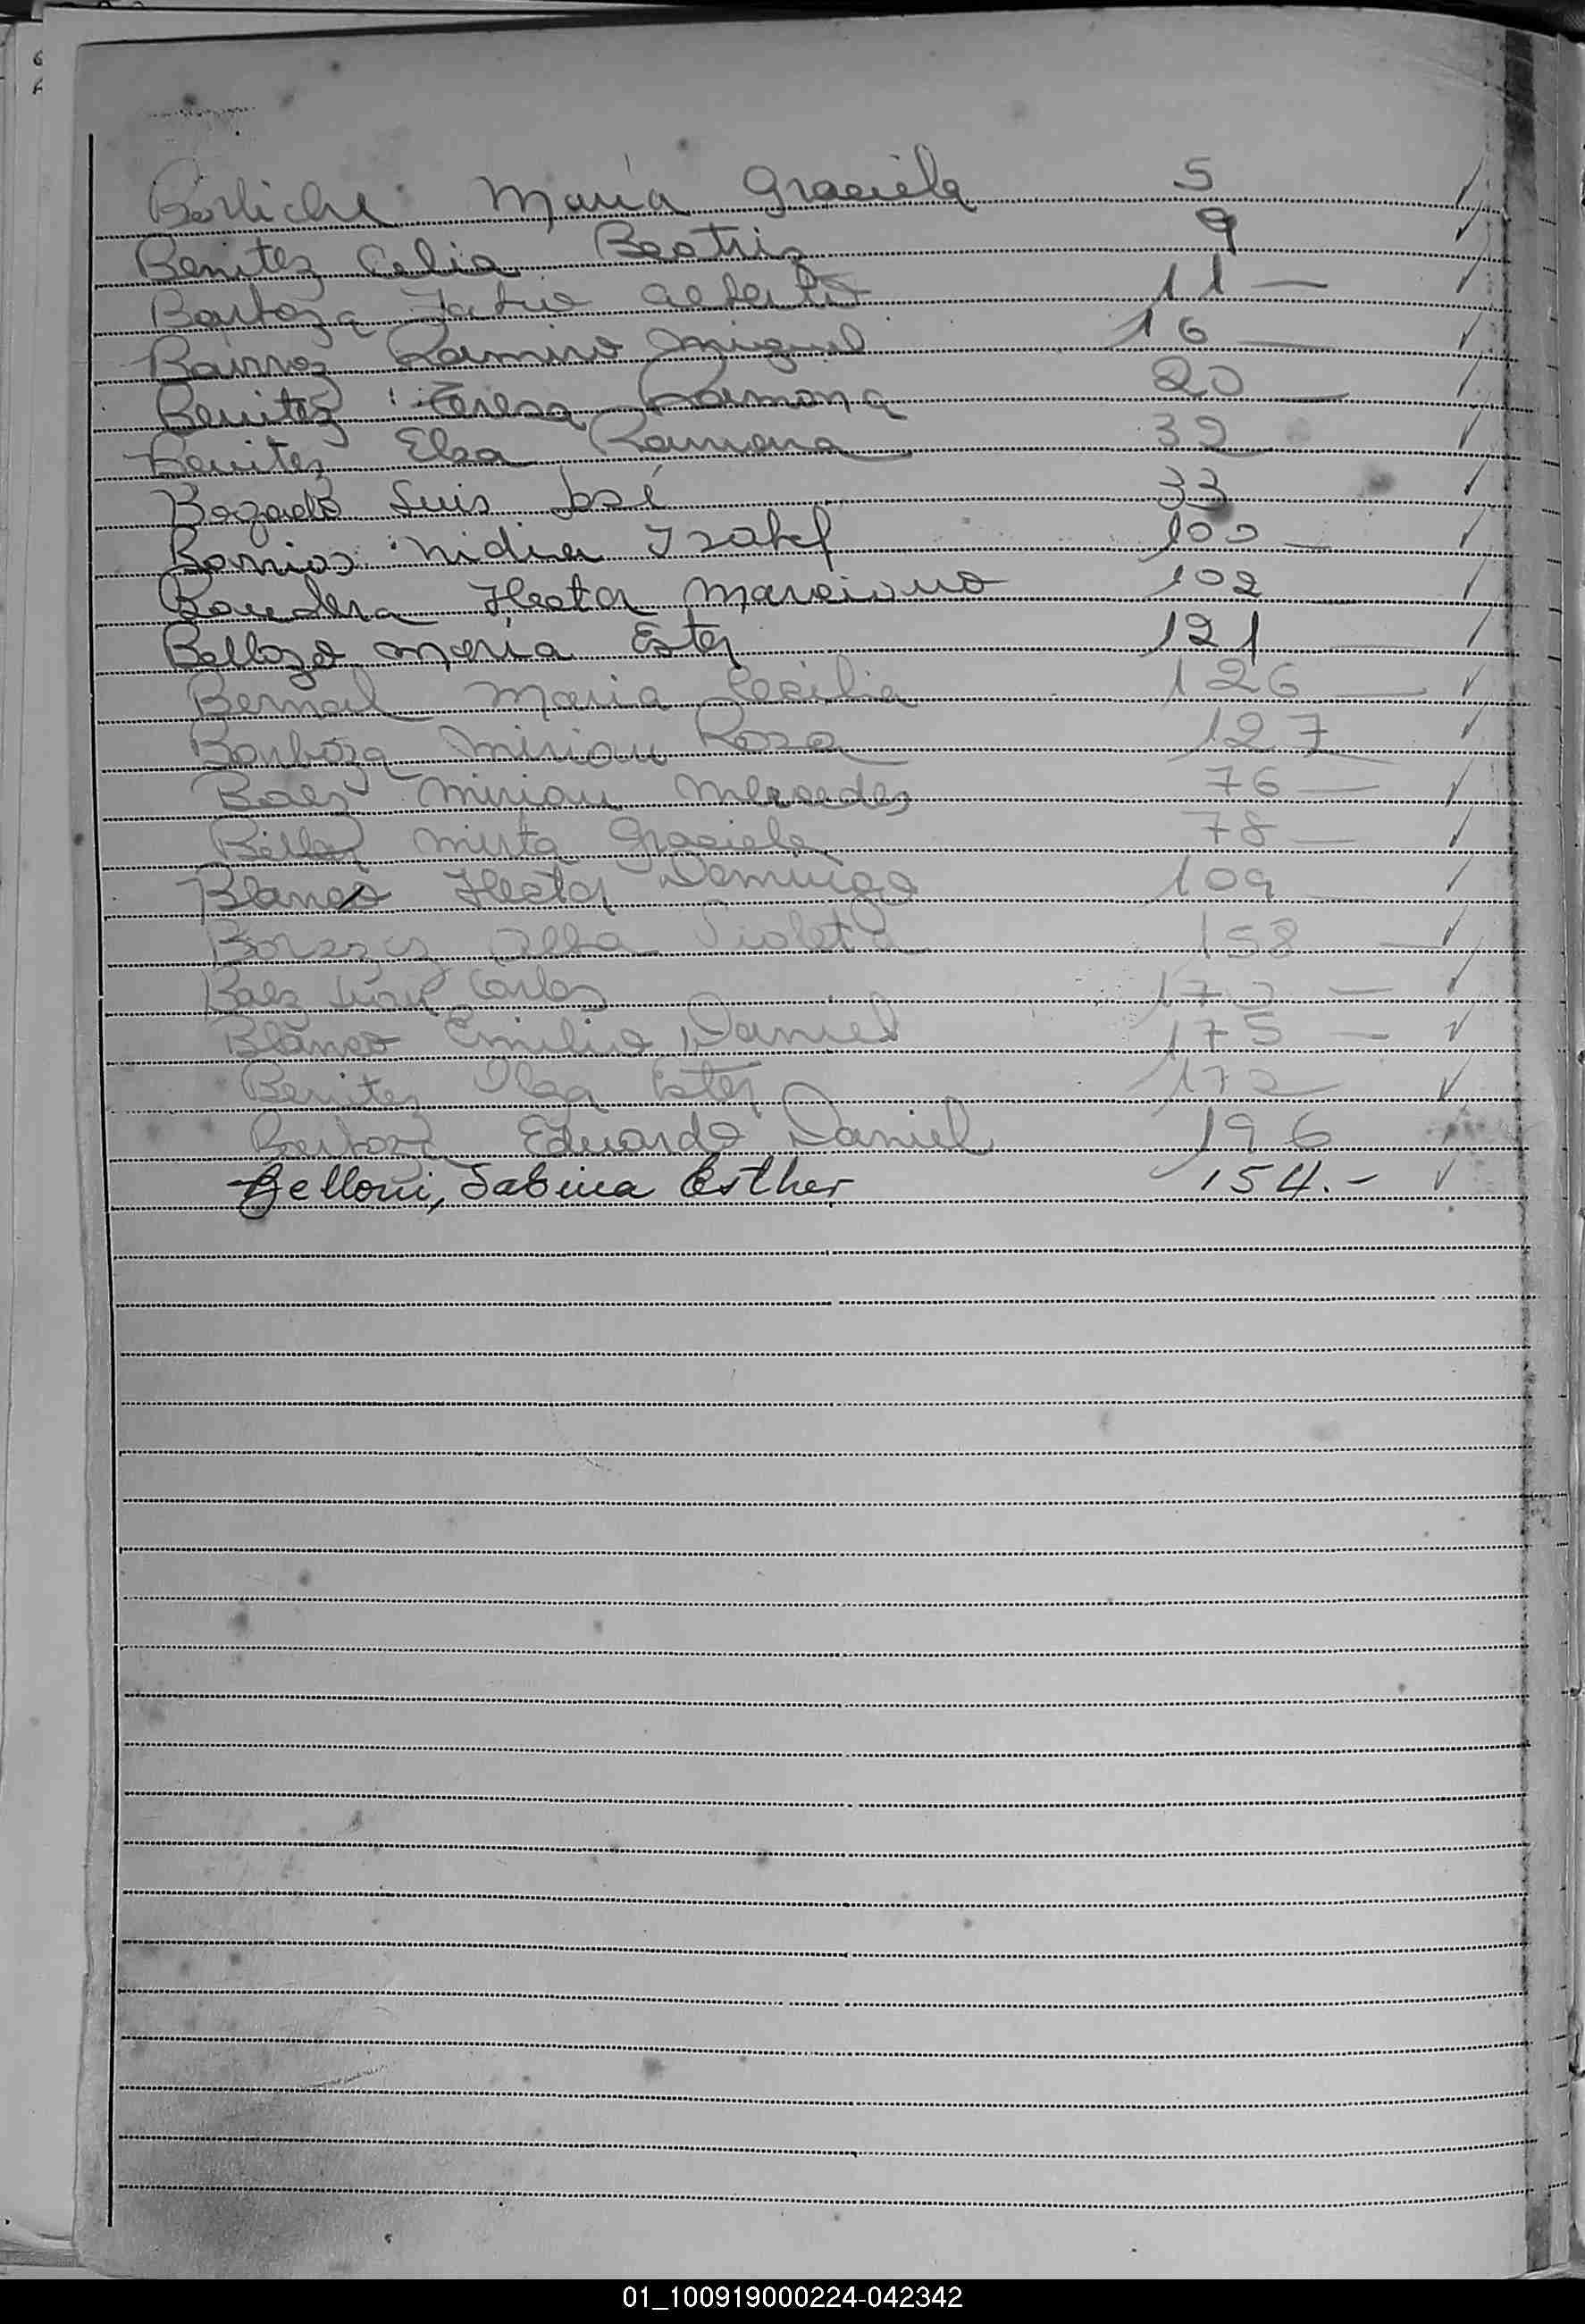 María Graciela 5
Benitez Celia Beatriz 9
Barboza Alberto 11 —
Ramiro Miguel 16 —
Benitez Teresa Ramona 20 —
Benitez Elsa Ramona 32
Bogado Luis José 33
Barrios Nidia Isabel 100 —
Hector Marciano 102
Bellozo María Ester 121
Bernal Maria Cecilia 126 —
Barboza Mirian Rosa 127
Baez Mirian Mercedes 76 —
Mirta Graciela 78 —
Blanco Hector Domingo 109
Alba Violeta 158 —
Baez Juan Carlos —
Blanco Emilio Daniel 175 —
Benitez Ester 172
Barboza Eduardo Daniel 196
Belloni, Sabina Esther 154.-
01_100919000224-042342